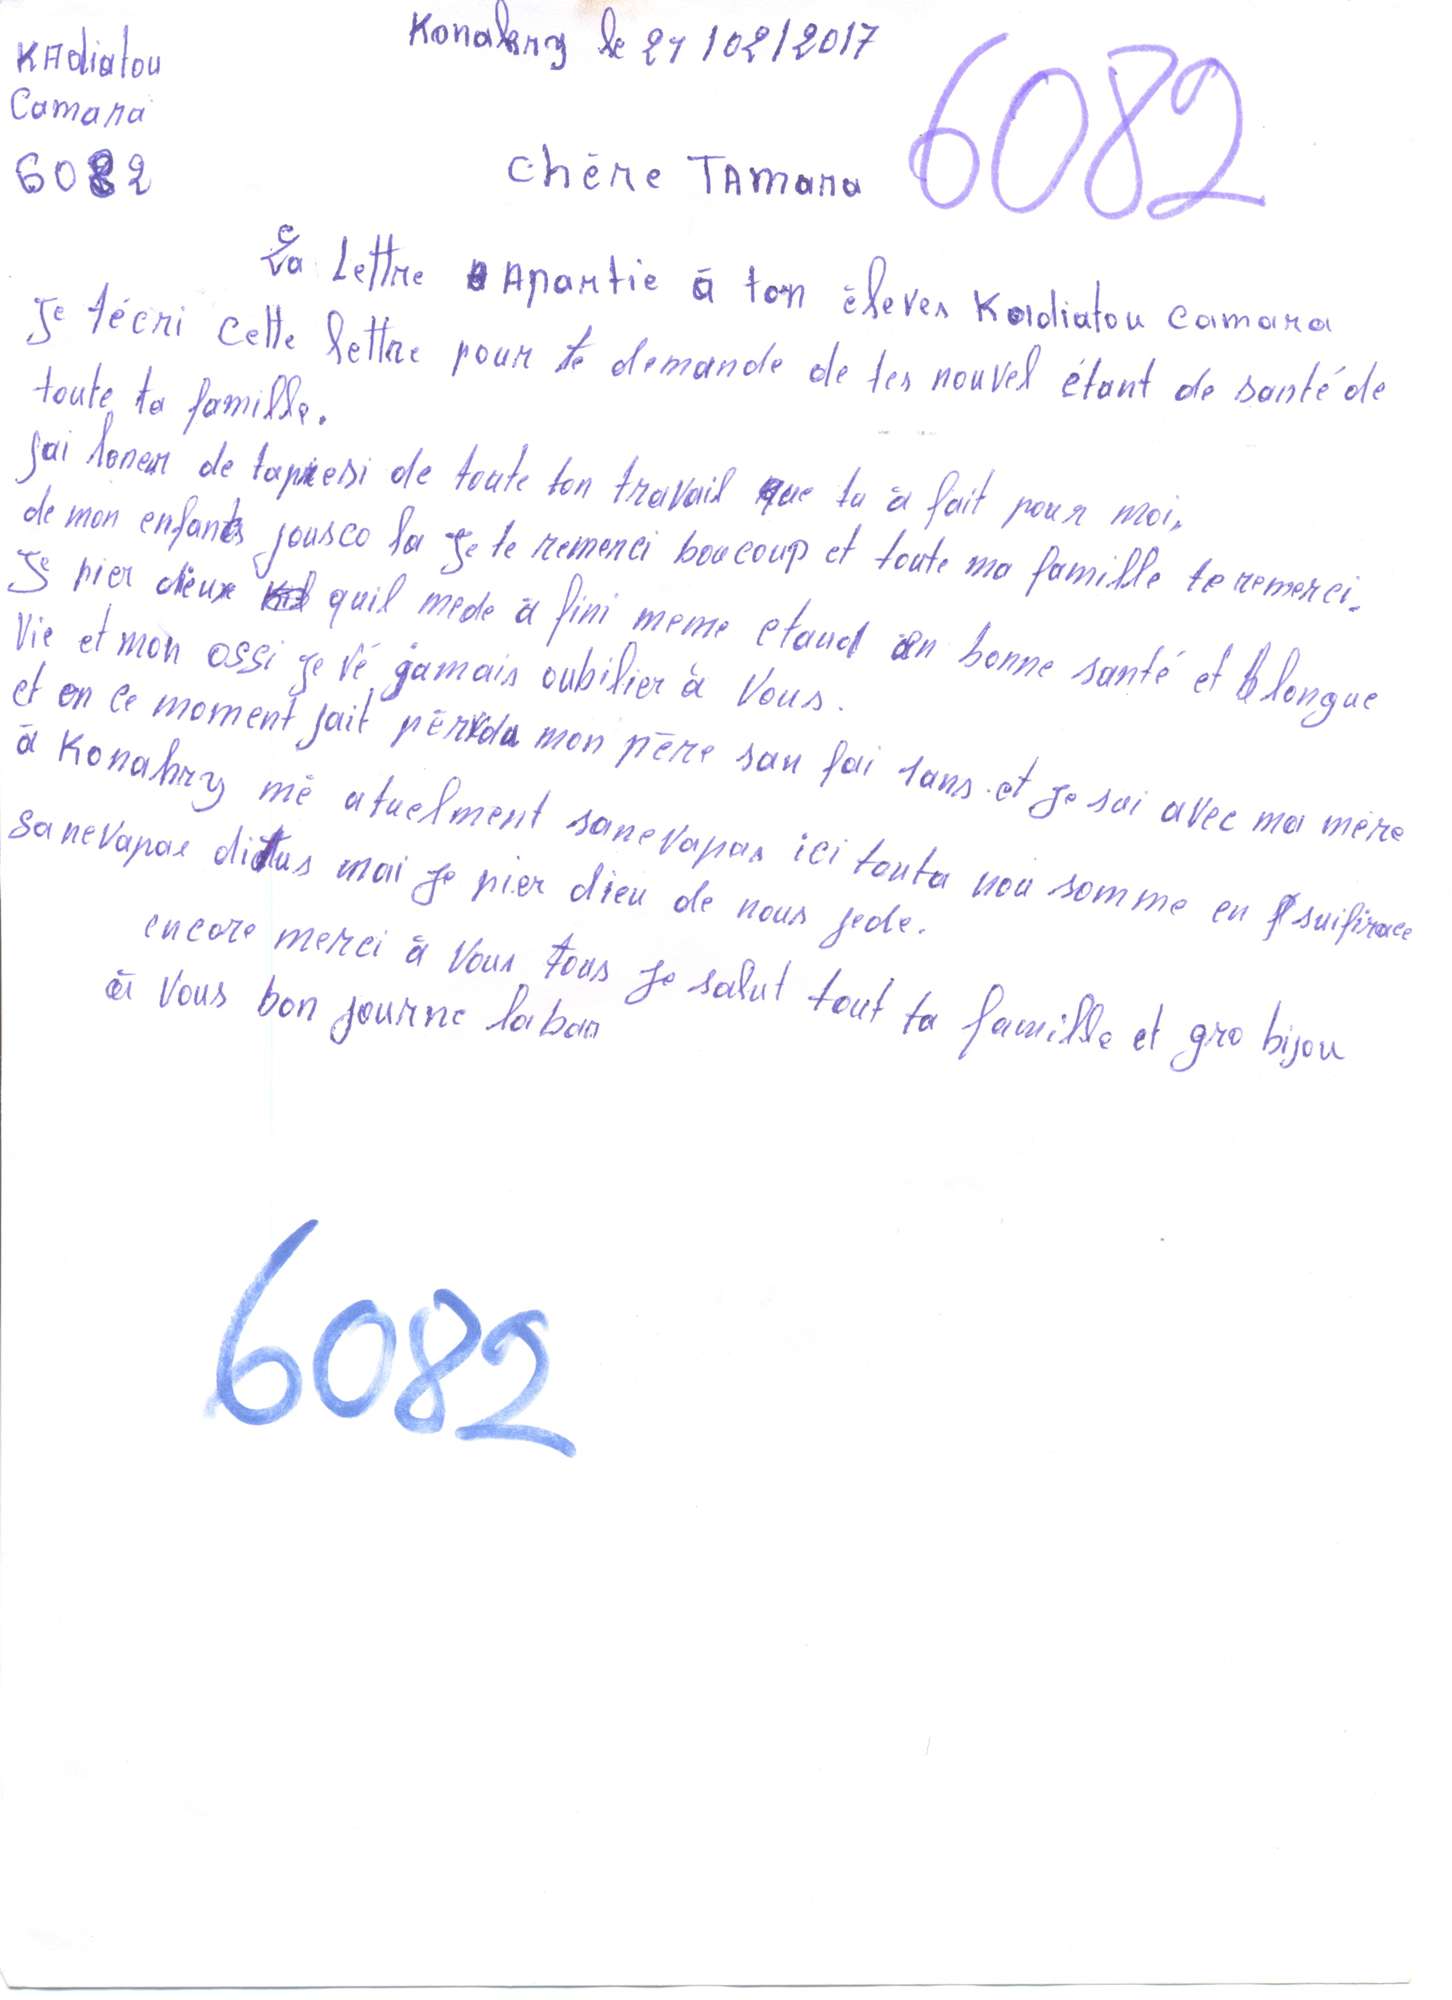 Konakry le 21/02/2017
KAdiatou
Camara
6082
6082
Chère TAmara
La Lettre Apartie à ton èleves Kadiatou camara
Je técri cette lettre pour te demande de tes nouvel étant de santé de
toute ta famille.
jai loneur de tapresi de toute ton travail que tu à fait pour moi,
de mon enfants jousco la je te remerci boucoup et toute ma famille te remerci.
Je pier dieux quil mede à fini meme etaud an bonne santé et longue
Vie et mon ossi je vé jamais oubilier à Vous.
et en ce moment jait pèrdu mon père sau fai 1ans et je sui avec ma mère
à Konakry mè atuelment sanevapas ici touta nou somme en suifirace
sanevapas ditus mai je pier dieu de nous jede.
encore merci à Vous tous je salut tout ta famille et gro bijou
à Vous bon journe labas
6082